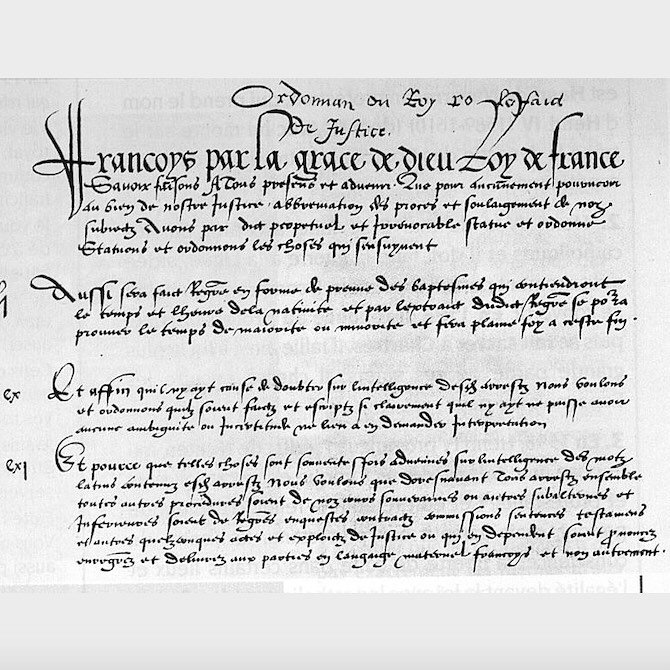 Ordonnan du Roy  Le faid
De Justice.
Francoys par la grace de dieu Roy de france
Savoir faisons A Tous presens et advenir. Que pour aucunement pourveoir
au bien de nostre Justice, abbreviation des proces et soulagement de noz
subiectz Avons par edict perpetuel et Irrevocable statue et ordonne
Statuons et ordonnons les choses qui sensuyuent
Aussi sera faict Regre en forme de preuve des baptesmes qui contiendront
le temps et lheure dela nativite et par lextraict dudict Regre se porra
prouver le temps de maiorite ou minorite et fera plaine foy a ceste fin.
cx Et affin quil ny ayt cause de doubter sur lintelligence desdz arrestz Nous voulons
et ordonnons quilz soient faictz et escriptz si clairement quil ny ayt ne puisse avoir
aucune ambiguite ou Incertitude ne lieu a en demander Interpretation
cxi Et pource que telles choses sont souventesfois advenues sur lintelligence des motz
latins contenuz esdz arrestz Nous voulons que doresnavant Tous arrestz ensemble
toutes autres procedures soient de noz cours souveraines ou autres subalternes et
Inferieures soient de Regres enquestes contractz commissions sentences testamens
et autres quelzconques actes et exploictz de Justice ou qui en dependent soient prononcez
enregrez et delivrez aux parties en langaige maternel francoys et non autrement.